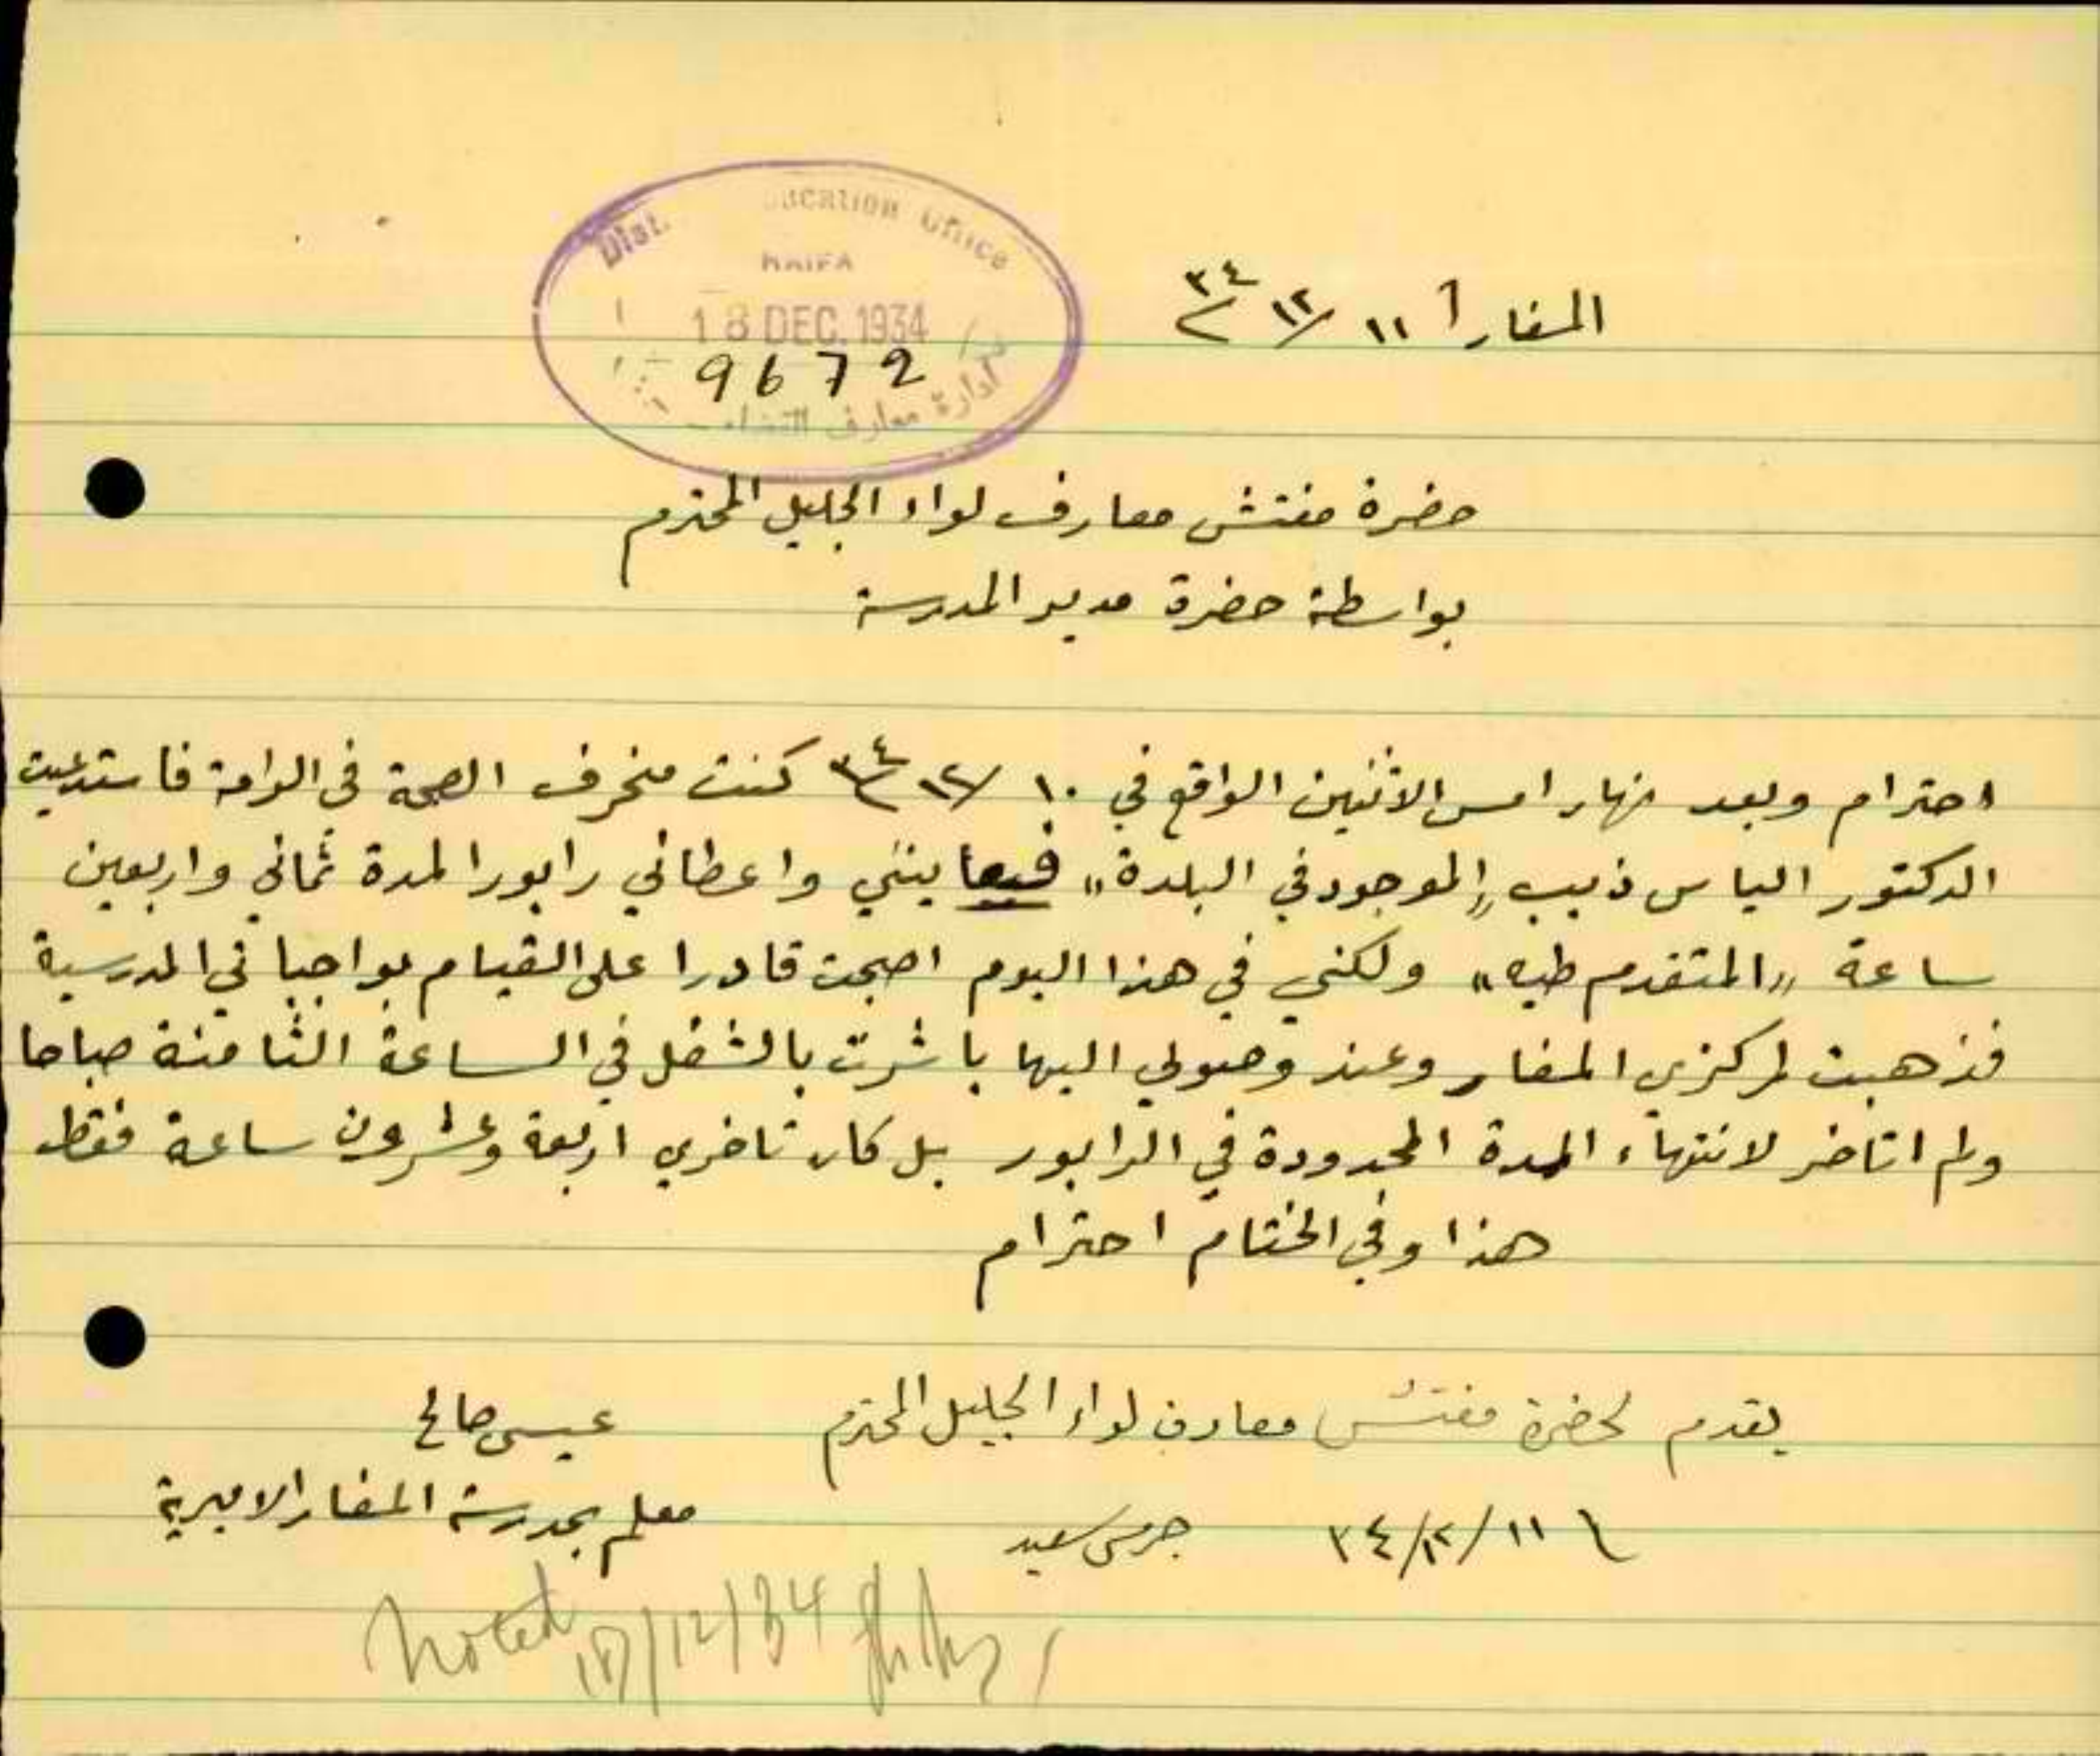 Dist. Education Office
HAIFA
18 DEC. 1934
9672
ادارة معارف القضاء
المغار ١١/١٢/٣٤
حضرة مفتش معارف لواء الجليل المحترم
بواسطة حضرة مدير المدرسة
احترام وبعد نهار امس الاثنين الواقع في ١٠/١٢/٣٤ كنت منحرف الصحة في الرامة فاستدعيت
الدكتور الياس ذيب "الموجود في البلدة" فيعاينني واعطاني رابورا لمدة ثماني واربعين
ساعة "المتقدم طيه" ولكني في هذا اليوم اصبحت قادرا على القيام بواجباتي المدرسية
فذهبت لمركزي المغار وعند وصولي اليها باشرت بالشغل في الساعة الثامنة صباحا
ولم اتاخر لانتهاء المدة المحدودة في الرابور بل كان تاخري اربعة وعشرون ساعة فقط
هذا وفي الختام احترام
عيسى صالح
معلم بمدرسة المغار الاميرية
يقدم لحضرة مفتش معارف لواء الجليل المحترم
١١/١٢/٣٤ جرس سعيد
Noted 18/12/34